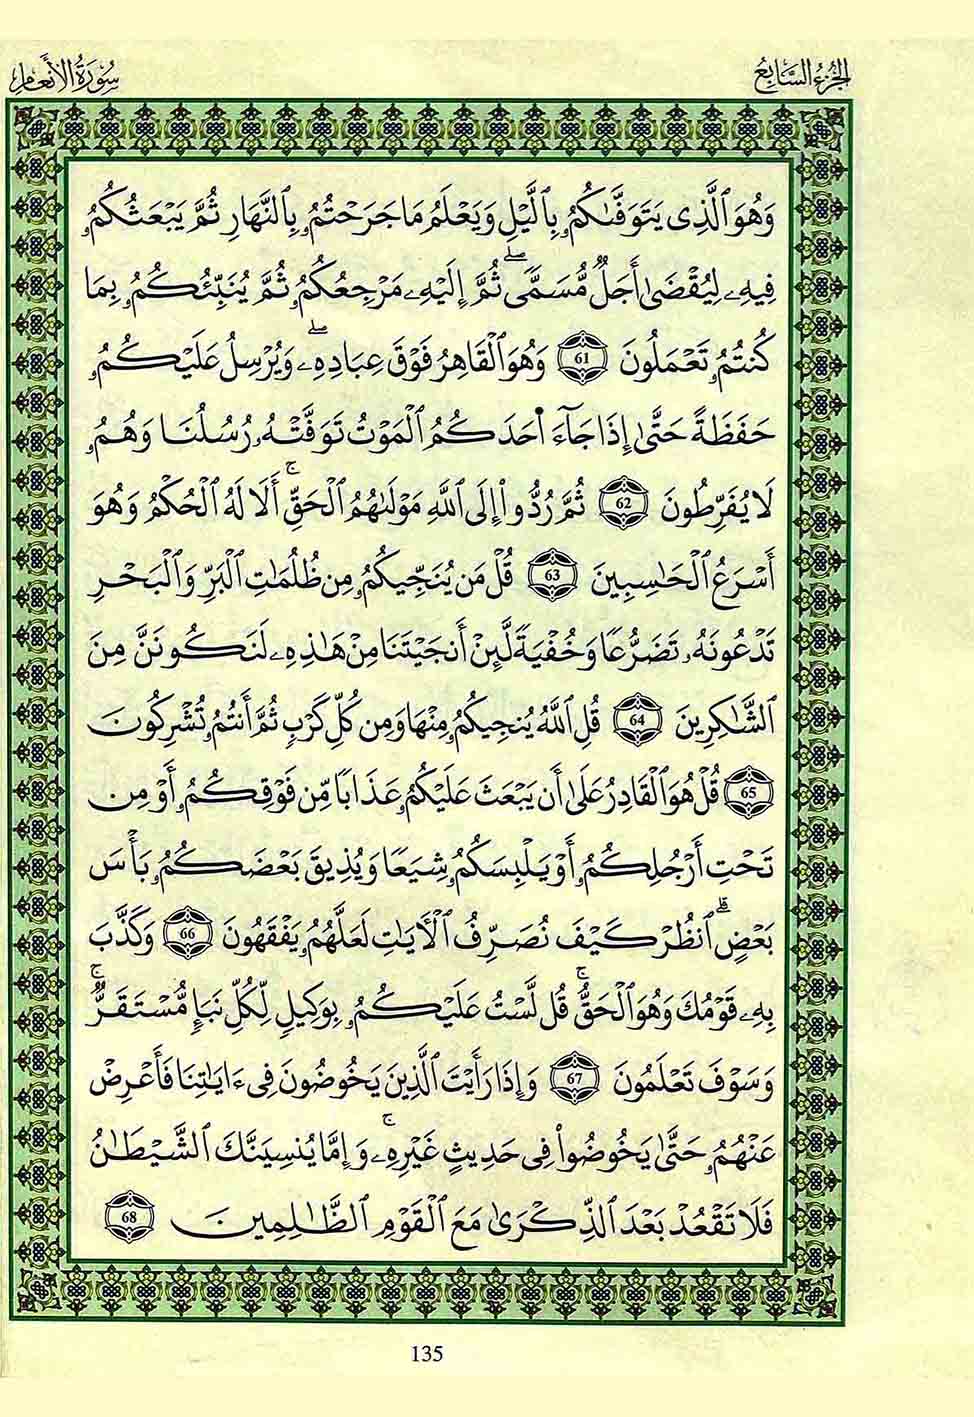 الجزء السابع
سورة الأنعام
وَهُوَ ٱلَّذِى يَتَوَفَّىٰكُمُۥ بِٱلَّيْلِ وَيَعْلَمُ مَا جَرَحْتُمُۥ بِٱلنَّهَارِ ثُمَّ يَبْعَثُكُمُۥ
فِيهِۦ لِيُقْضَىٰٓ أَجَلٌ مُّسَمًّىۖ ثُمَّ إِلَيْهِۦ مَرْجِعُكُمُۥ ثُمَّ يُنَبِّئُكُمُۥ بِمَا
كُنتُمُۥ تَعْمَلُونَ 61 وَهُوَ ٱلْقَاهِرُ فَوْقَ عِبَادِهِۦۖ وَيُرْسِلُ عَلَيْكُمُۥ
حَفَظَةً حَتَّىٰ إِذَا جَآءَ احَدَكُمُ ٱلْمَوْتُ تَوَفَّتْهُۥ رُسُلُنَا وَهُمُۥ
لَا يُفَرِّطُونَ 62 ثُمَّ رُدُّوٓا۟ إِلَى ٱللَّهِ مَوْلَىٰهُمُ ٱلْحَقِّۚ أَلَا لَهُ ٱلْحُكْمُ وَهُوَ
أَسْرَعُ ٱلْحَـٰسِبِينَ 63 قُلْ مَن يُنَجِّيكُمُۥ مِن ظُلُمَـٰتِ ٱلْبَرِّ وَٱلْبَحْرِ
تَدْعُونَهُۥ تَضَرُّعًا وَخُفْيَةً لَّئِنْ أَنجَيْتَنَا مِنْ هَـٰذِهِۦ لَنَكُونَنَّ مِنَ
ٱلشَّـٰكِرِينَ 64 قُلِ ٱللَّهُ يُنجِيكُمُۥ مِنْهَا وَمِن كُلِّ كَرْبٍ ثُمَّ أَنتُمُۥ تُشْرِكُونَ
65 قُلْ هُوَ ٱلْقَادِرُ عَلَىٰٓ أَن يَبْعَثَ عَلَيْكُمُۥ عَذَابًا مِّن فَوْقِكُمُۥٓ أَوْ مِن
تَحْتِ أَرْجُلِكُمُۥٓ أَوْ يَلْبِسَكُمُۥ شِيَعًا وَيُذِيقَ بَعْضَكُمُۥ بَأْسَ
بَعْضٍۗ ٱنظُرْ كَيْفَ نُصَرِّفُ ٱلْأَيَـٰتِ لَعَلَّهُمُۥ يَفْقَهُونَ 66 وَكَذَّبَ
بِهِۦ قَوْمُكَ وَهُوَ ٱلْحَقُّۚ قُل لَّسْتُ عَلَيْكُمُۥ بِوَكِيلٍ لِّكُلِّ نَبَإٍ مُّسْتَقَرٌّۚ
وَسَوْفَ تَعْلَمُونَ 67 وَإِذَا رَأَيْتَ ٱلَّذِينَ يَخُوضُونَ فِىٓ ءَايَـٰتِنَا فَأَعْرِضْ
عَنْهُمُۥ حَتَّىٰ يَخُوضُوا۟ فِى حَدِيثٍ غَيْرِهِۦۚ وَإِمَّا يُنسِيَنَّكَ ٱلشَّيْطَـٰنُ
فَلَا تَقْعُدْ بَعْدَ ٱلذِّكْرَىٰ مَعَ ٱلْقَوْمِ ٱلظَّـٰلِمِينَ 68
135